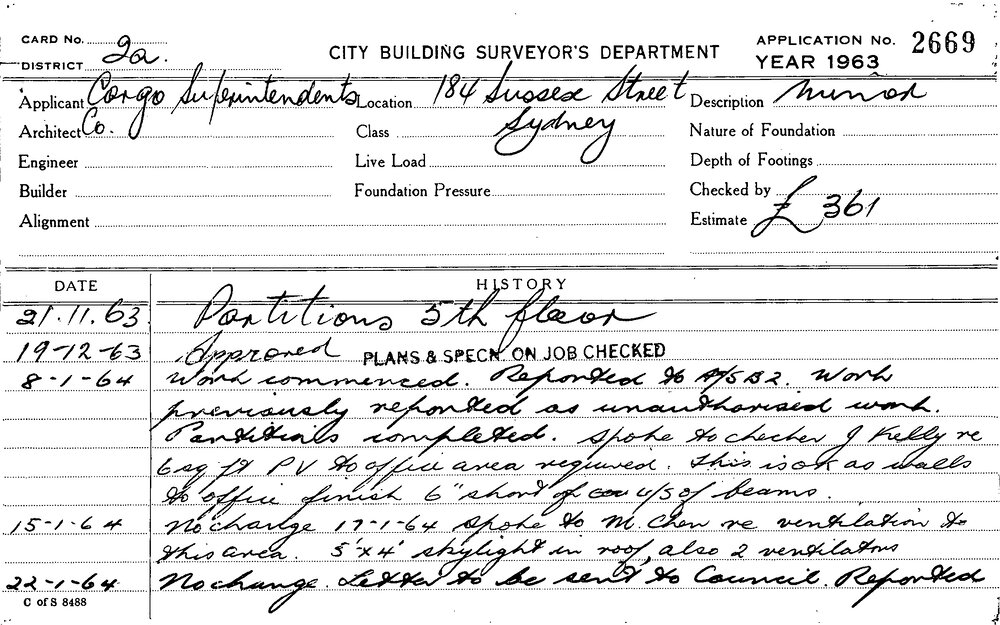 CARD No.
DISTRICT 2a.
CITY BUILDING SURVEYOR'S DEPARTMENT
APPLICATION No. 2669
YEAR 1963
Applicant Cargo Superintendents Location 184 Sussex Street Description Minor
Architect Co. Class Sydney Nature of Foundation
Engineer Live Load Depth of Footings
Builder Foundation Pressure Checked by
Alignment Estimate £361
DATE HISTORY
21.11.63 Partitions 5th floor
19-12-63 Approved PLANS & SPECN. ON JOB CHECKED
8-1-64 Work commenced. Reported to Work
previously reported as unauthorised work.
Partitions completed. Spoke to checker J Kelly re
6 sq ft PV to office area required. This is ok as walls
to office finish 6" short of u/s of beams.
15-1-64 No change 17-1-64 spoke to M. Chen re ventilation to
this area. 5'x4' skylight in roof, also 2 ventilators
22-1-64 No change. Letter to be sent to Council. Reported
C of S 8488